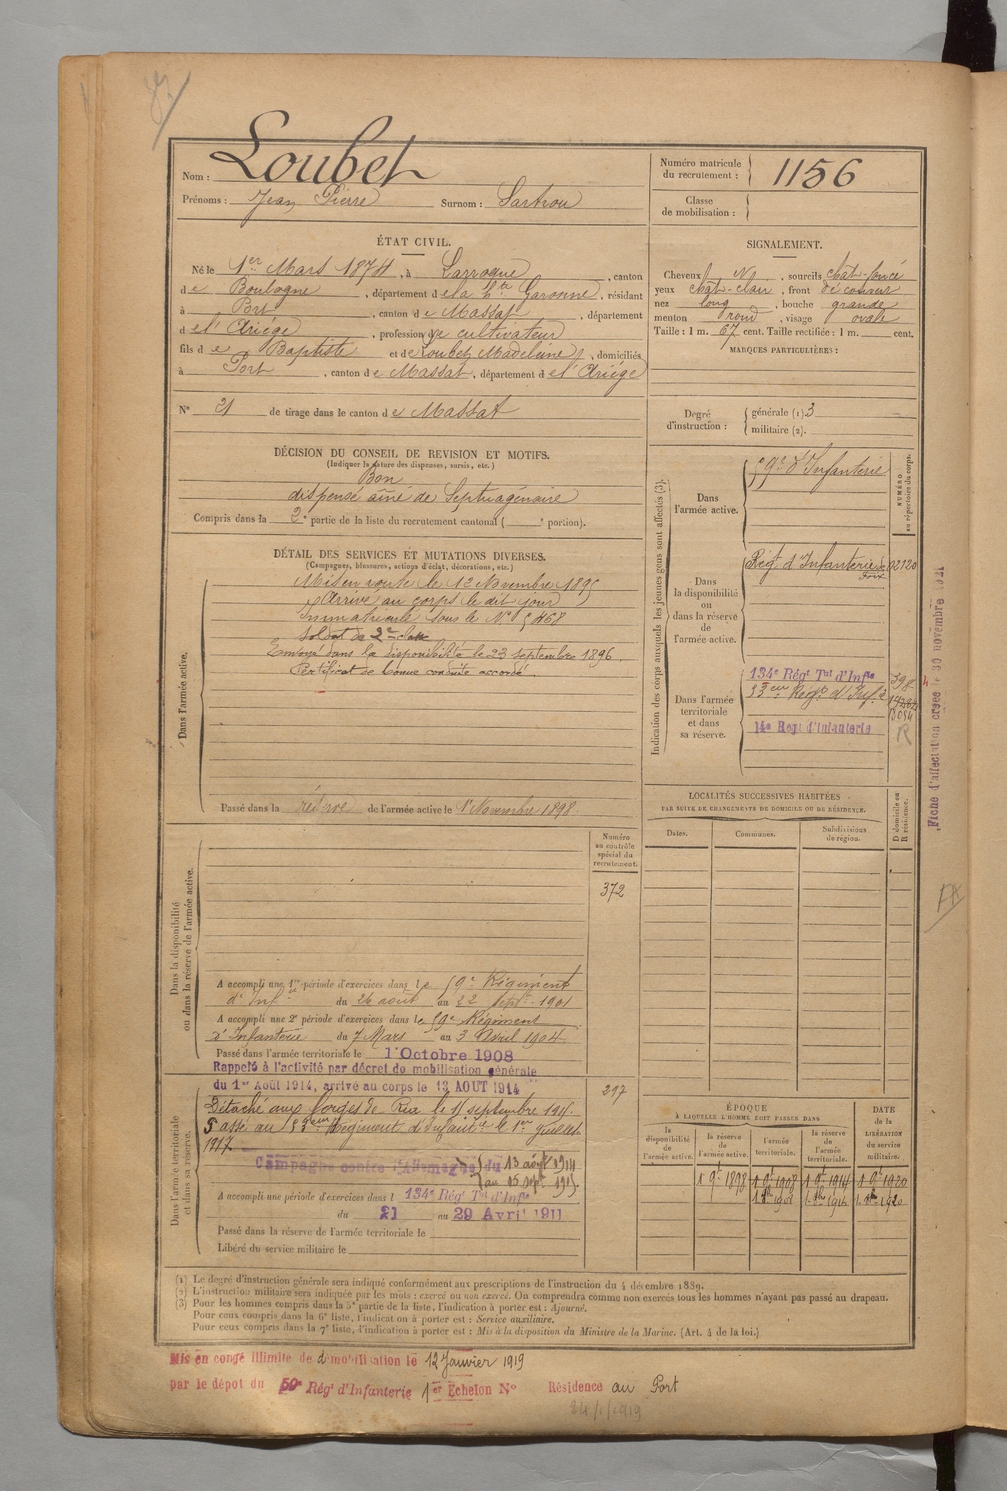 Nom : Loubet
Prénoms : Jean Pierre Surnom : Sartrou
Numéro matricule du recrutement : 1156
Classe de mobilisation :
ÉTAT CIVIL.
Né le 1er Mars 1874, à Larroque, canton
de Boulogne, département de la Hte Garonne, résidant
à Port, canton de Massat, département
de l'Ariége, profession de cultivateur
fils de Baptiste et de Loubet Madeleine, domiciliés
à Port, canton de Massat, département de l'Ariége
N° 21 de tirage dans le canton de Massat
SIGNALEMENT.
Cheveux N, sourcils chât-foncé
yeux chât-clair, front découvert
nez long, bouche grande
menton rond, visage ovale
Taille : 1 m. 67 cent. Taille rectifiée : 1 m. cent.
MARQUES PARTICULIÈRES :
Degré d'instruction :
générale (1) 3
militaire (2).
DÉCISION DU CONSEIL DE REVISION ET MOTIFS.
(Indiquer la nature des dispenses, sursis, etc.)
Bon
dispensé aîné de Septuagénaire
Compris dans la 2e partie de la liste du recrutement cantonal ( e portion).
DÉTAIL DES SERVICES ET MUTATIONS DIVERSES.
(Campagnes, blessures, actions d'éclat, décorations, etc.)
Dans l'armée active.
Mis en route le 12 Novembre 1895
Arrivé au corps le dit jour
Immatriculé sous le N° 5468
Soldat de 2e classe
Envoyé dans la disponibilité le 23 septembre 1896.
Certificat de bonne conduite accordé.
Passé dans la réserve de l'armée active le 1er Novembre 1898
Indication des corps auxquels les jeunes gens sont affectés (3).
NUMÉRO au répertoire du corps.
Dans l'armée active.
59e d'Infanterie
Dans la disponibilité ou dans la réserve de l'armée active.
Régt d'Infanterie de Foix 02120
Dans l'armée territoriale et dans sa réserve.
134e Régt Tal d'Infie 398
14e Regt d'Infanterie
Fiche d'affectation créée le 30 novembre 1921
LOCALITÉS SUCCESSIVES HABITÉES
PAR SUITE DE CHANGEMENTS DE DOMICILE OU DE RÉSIDENCE.
Dates.
Communes.
Subdivisions de région.
D domicile ou R résidence.
Dans la disponibilité ou dans la réserve de l'armée active.
Numéro au contrôle spécial du recrutement.
372
A accompli une 1re période d'exercices dans le 59e Régiment
d'Infie du 26 août au 22 Septe 1901
A accompli une 2e période d'exercices dans le 59e Régiment
d'Infanterie du 7 Mars au 3 Avril 1904
Passé dans l'armée territoriale le 1er Octobre 1908
Dans l'armée territoriale et dans sa réserve.
Rappelé à l'activité par décret de mobilisation générale
du 1er Août 1914, arrivé au corps le 13 AOUT 1914
297
Détaché aux Forges de le 15 septembre 1915.
Passé au Régiment d'Infanterie le 1er Juillet
1917
Campagne contre l'Allemagne du 13 août 1914
au 15 sept. 1915.
A accompli une période d'exercices dans l 134e Régt Tal d'Infie
du 21 au 29 Avril 1911
Passé dans la réserve de l'armée territoriale le
Libéré du service militaire le
ÉPOQUE
À LAQUELLE L'HOMME DOIT PASSER DANS
la disponibilité de l'armée active.
la réserve de l'armée active.
l'armée territoriale.
la réserve de l'armée territoriale.
DATE de la LIBÉRATION du service militaire.
1 9e 1898 1 9e 1908 1 9e 1914 1 9e 1920
(1) Le degré d'instruction générale sera indiqué conformément aux prescriptions de l'instruction du 4 décembre 1889.
(2) L'instruction militaire sera indiquée par les mots : exercé ou non exercé. On comprendra comme non exercés tous les hommes n'ayant pas passé au drapeau.
(3) Pour les hommes compris dans la 5e partie de la liste, l'indication à porter est : Ajourné.
Pour ceux compris dans la 6e liste, l'indication à porter est : Service auxiliaire.
Pour ceux compris dans la 7e liste, l'indication à porter est : Mis à la disposition du Ministre de la Marine. (Art. 4 de la loi.)
Mis en congé illimité de démobilisation le 12 Janvier 1919
par le dépôt du 59e Régt d'Infanterie 1er Echelon N° Résidence au Port
24/1/1919